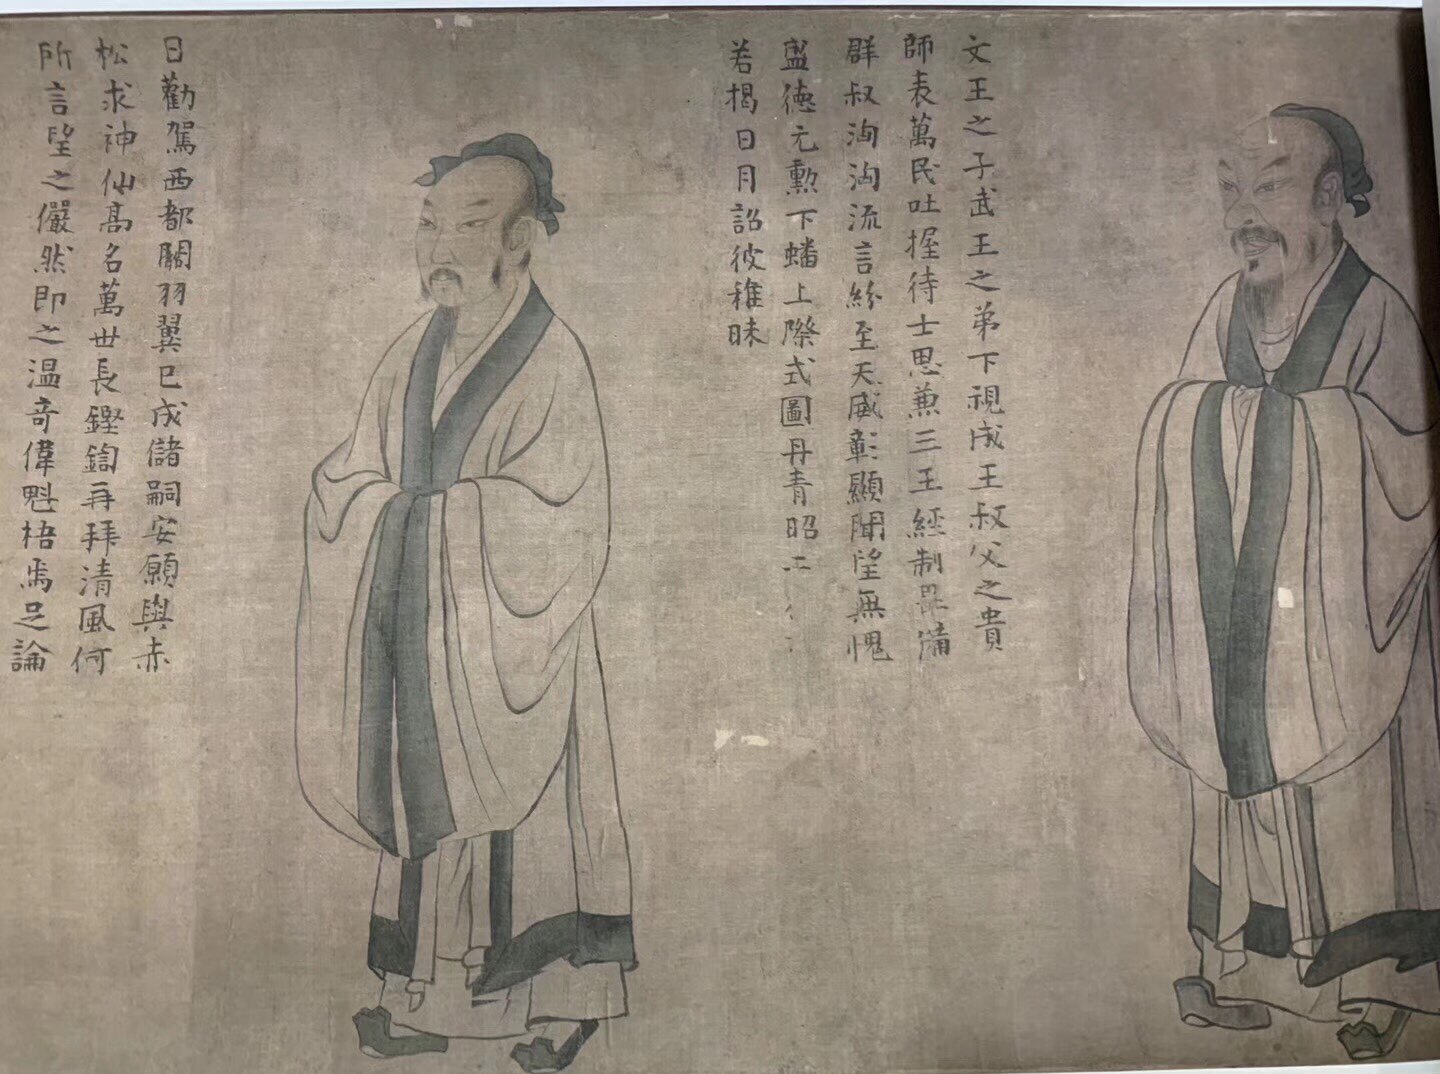 文王之子武王之弟下視成王叔父之貴
師表萬民吐握待士思兼三王經制畢備
群叔洶洶流言紛至天威彰顯聞望無愧
盛德元勲下蟠上際式圖丹青昭
若揭日月詔彼稚昧
日勸駕西都關羽翼已成儲嗣安願與赤
松求神仙高名萬世長鏗鍧再拜清風何
所言望之儼然即之温奇偉魁梧焉足論